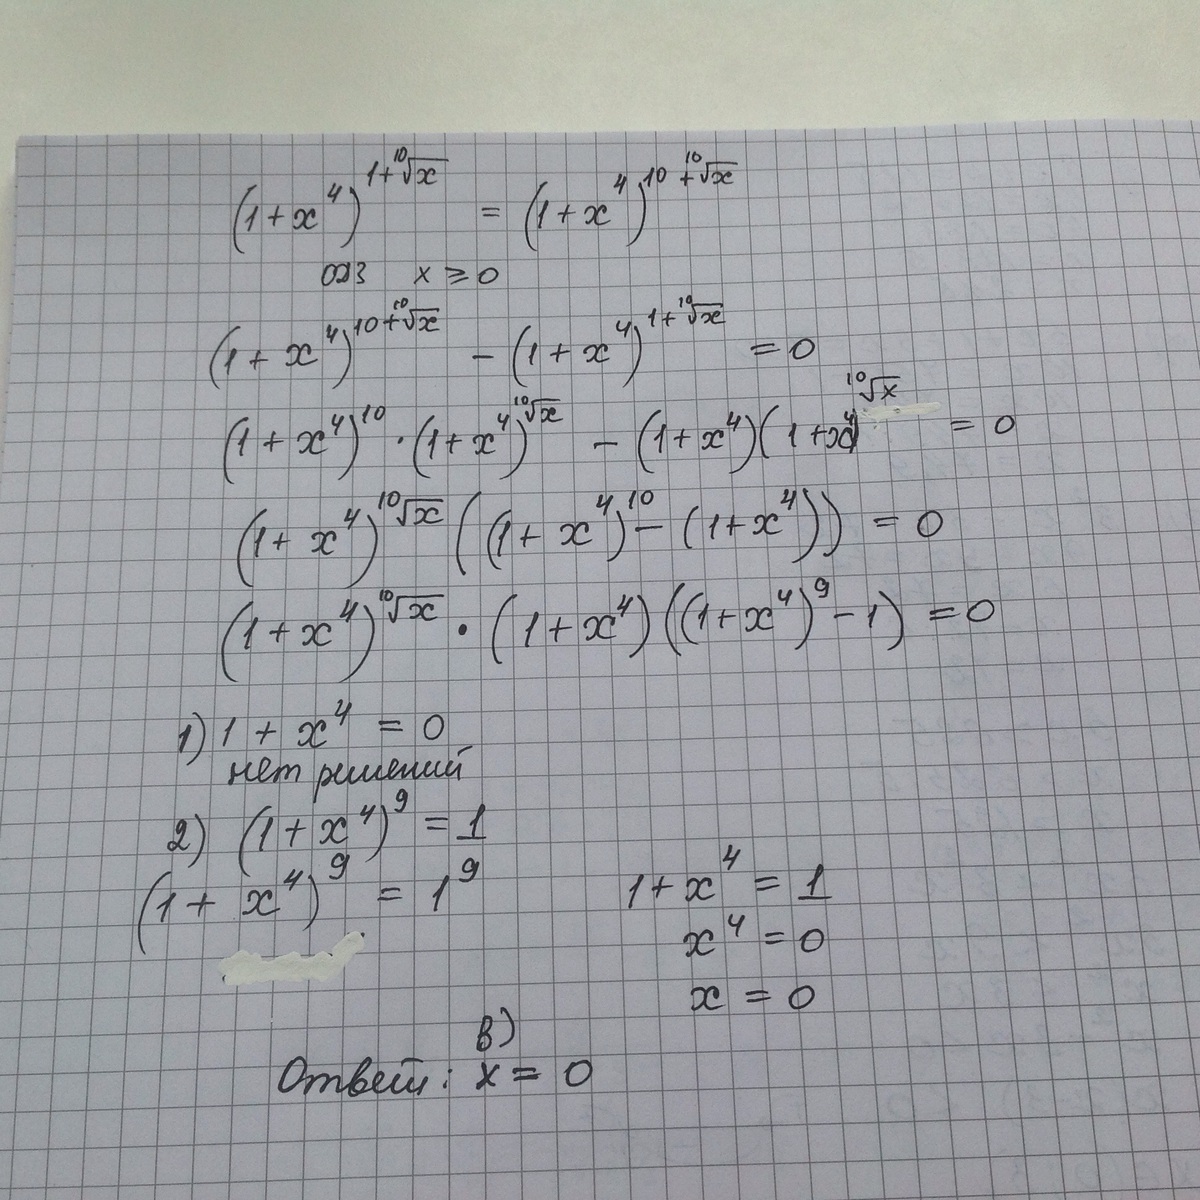 (1+x⁴)^(1+¹⁰√x) = (1+x⁴)^(10+¹⁰√x)
ОДЗ x ≥ 0
(1+x⁴)^(10+¹⁰√x) − (1+x⁴)^(1+¹⁰√x) = 0
(1+x⁴)¹⁰ · (1+x⁴)^(¹⁰√x) − (1+x⁴)(1+x⁴)^(¹⁰√x) = 0
(1+x⁴)^(¹⁰√x) ((1+x⁴)¹⁰ − (1+x⁴)) = 0
(1+x⁴)^(¹⁰√x) · (1+x⁴)((1+x⁴)⁹ − 1) = 0
1) 1 + x⁴ = 0
нет решений
2) (1+x⁴)⁹ = 1
(1+x⁴)⁹ = 1⁹
1+x⁴ = 1
x⁴ = 0
x = 0
в)
Ответ: x = 0